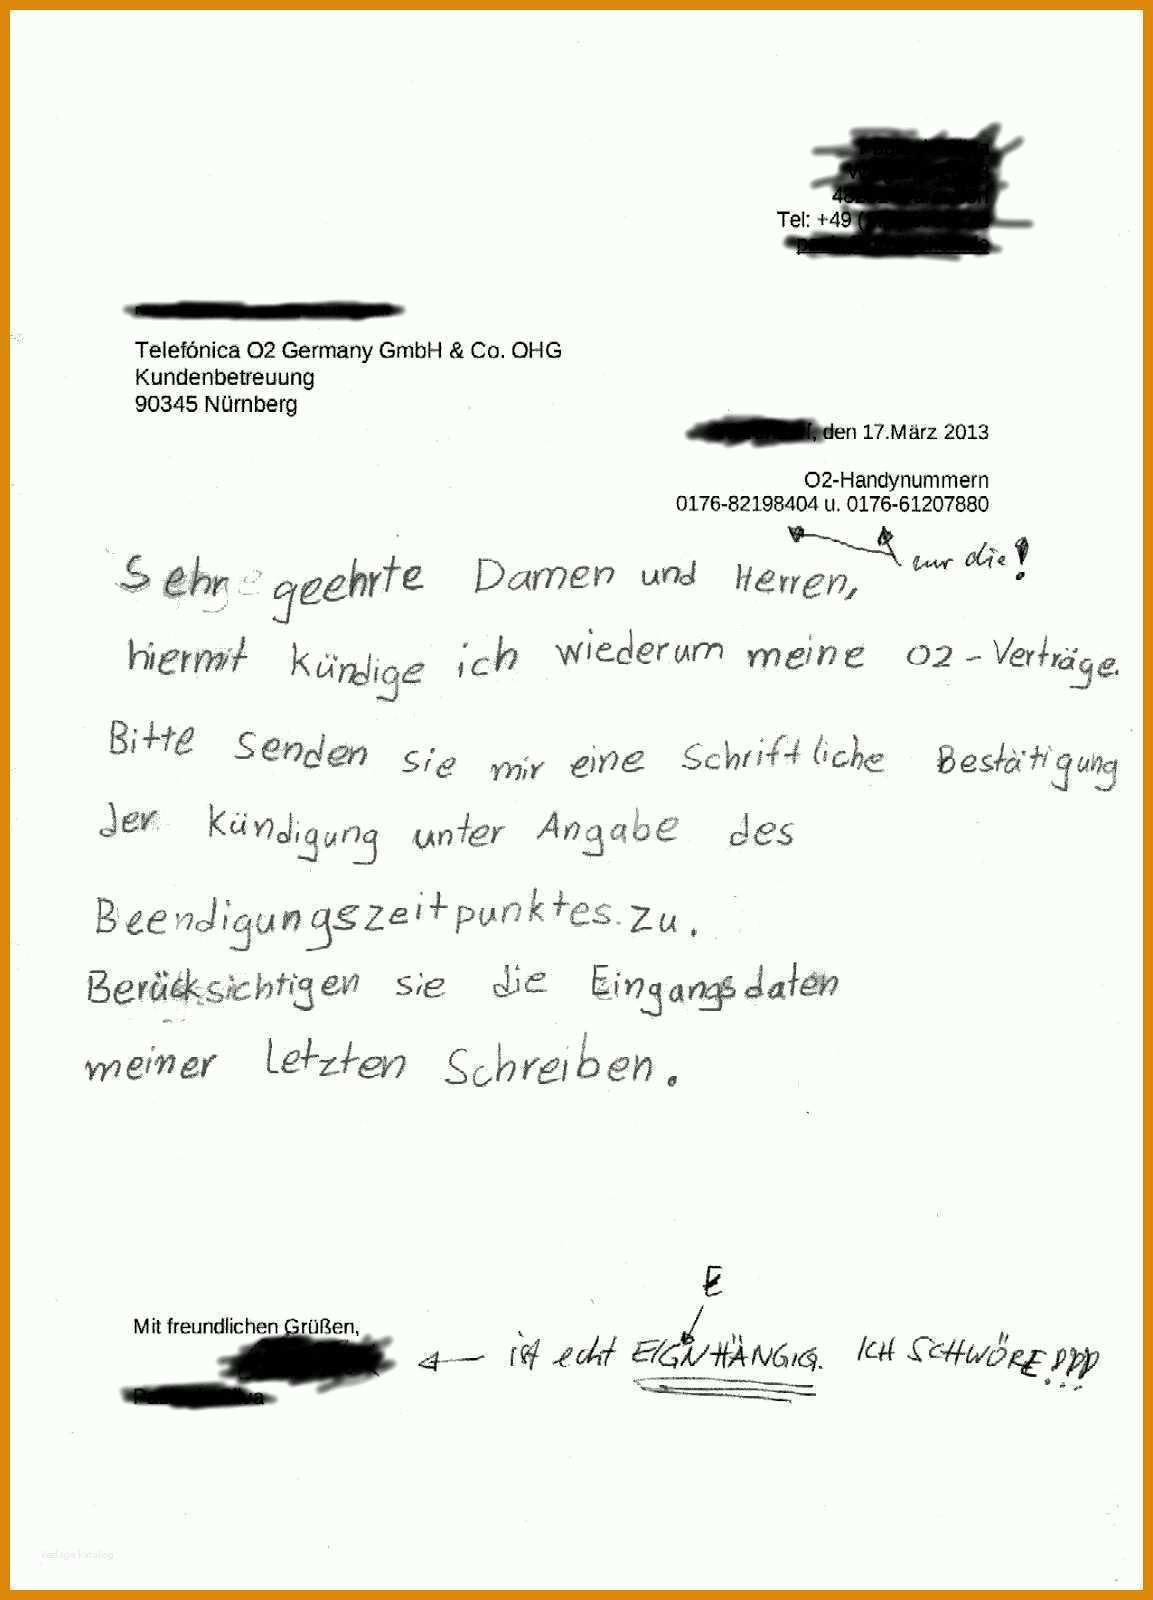 Tel: +49 (
Telefónica O2 Germany GmbH & Co. OHG
Kundenbetreuung
90345 Nürnberg
, den 17.März 2013
O2-Handynummern
0176-82198404 u. 0176-61207880
nur die!
Sehr geehrte Damen und Herren,
hiermit kündige ich wiederum meine O2-Verträge.
Bitte senden sie mir eine schriftliche Bestätigung
der Kündigung unter Angabe des
Beendigungszeitpunktes zu.
Berücksichtigen sie die Eingangsdaten
meiner letzten Schreiben.
E
Mit freundlichen Grüßen,
ist echt EIGNHÄNGIG. ICH SCHWÖRE!!!
vorlage katalog